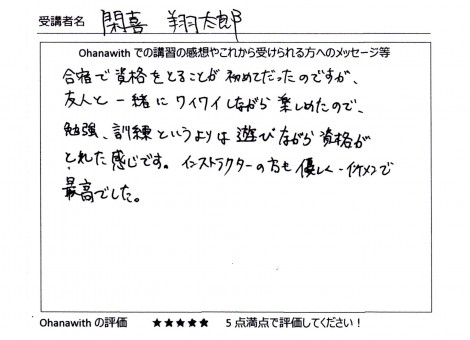 受講者名 閑喜 翔太郎
Ohanawith での講習の感想やこれから受けられる方へのメッセージ等
合宿で資格をとることが初めてだったのですが、
友人と一緒にワイワイしながら楽しめたので、
勉強、訓練というよりは遊びながら資格が
とれた感じです。インストラクターの方も優しく、イケメンで
最高でした。
Ohanawith の評価 ★★★★★ 5点満点で評価してください！